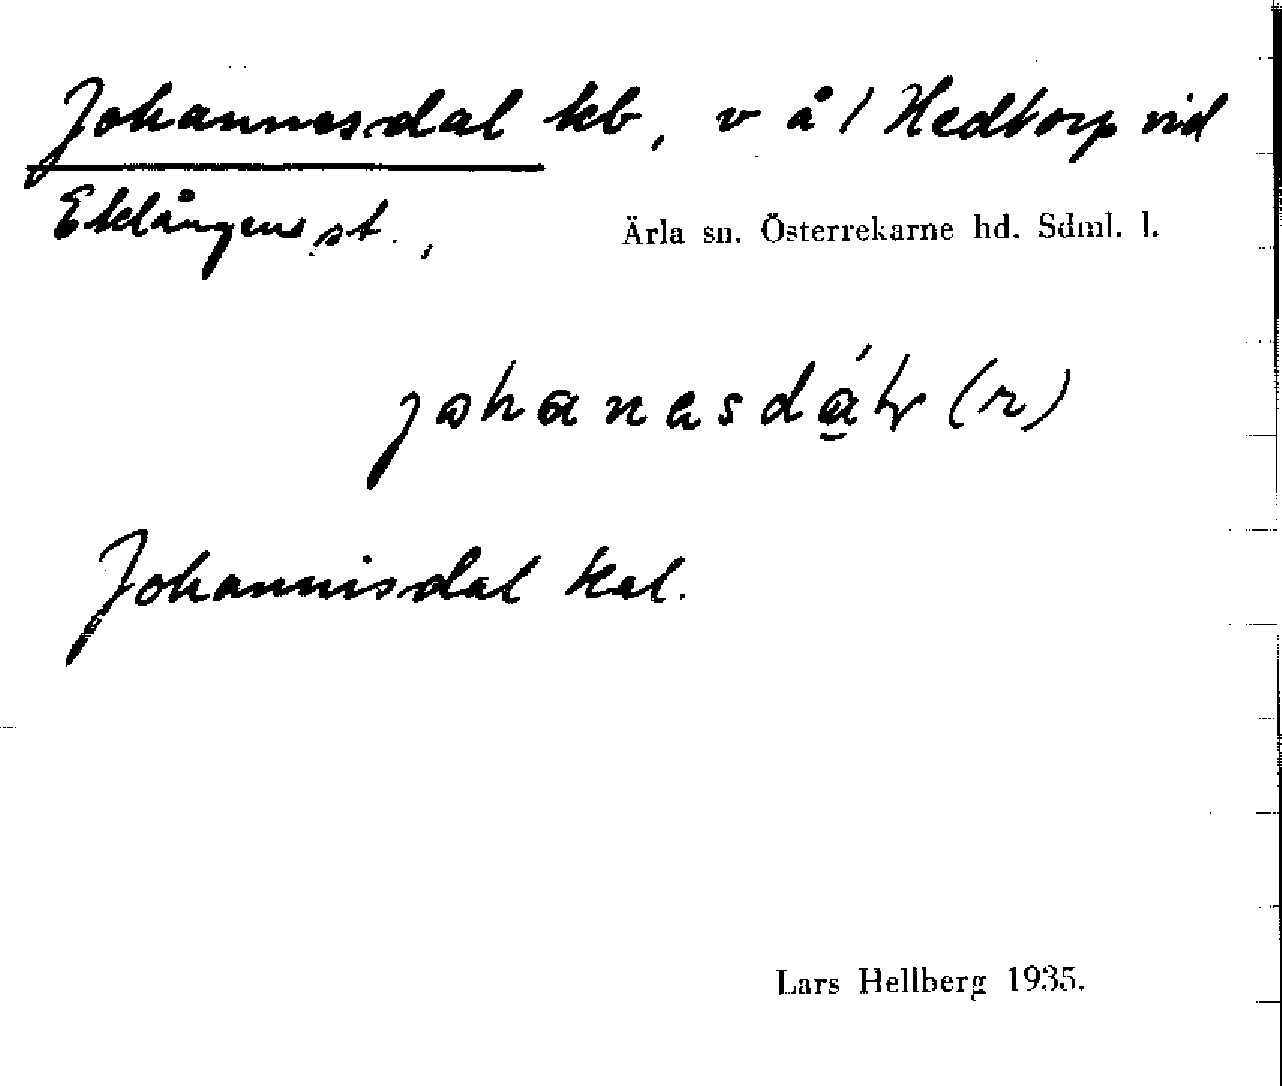 Johannesdal kb, v å / Hedtorp vid
Eklångens st.,
Ärla sn. Österrekarne hd. Sdml. l.
johanesdáḷ (r)
Johannisdal kal.
Lars Hellberg 1935.